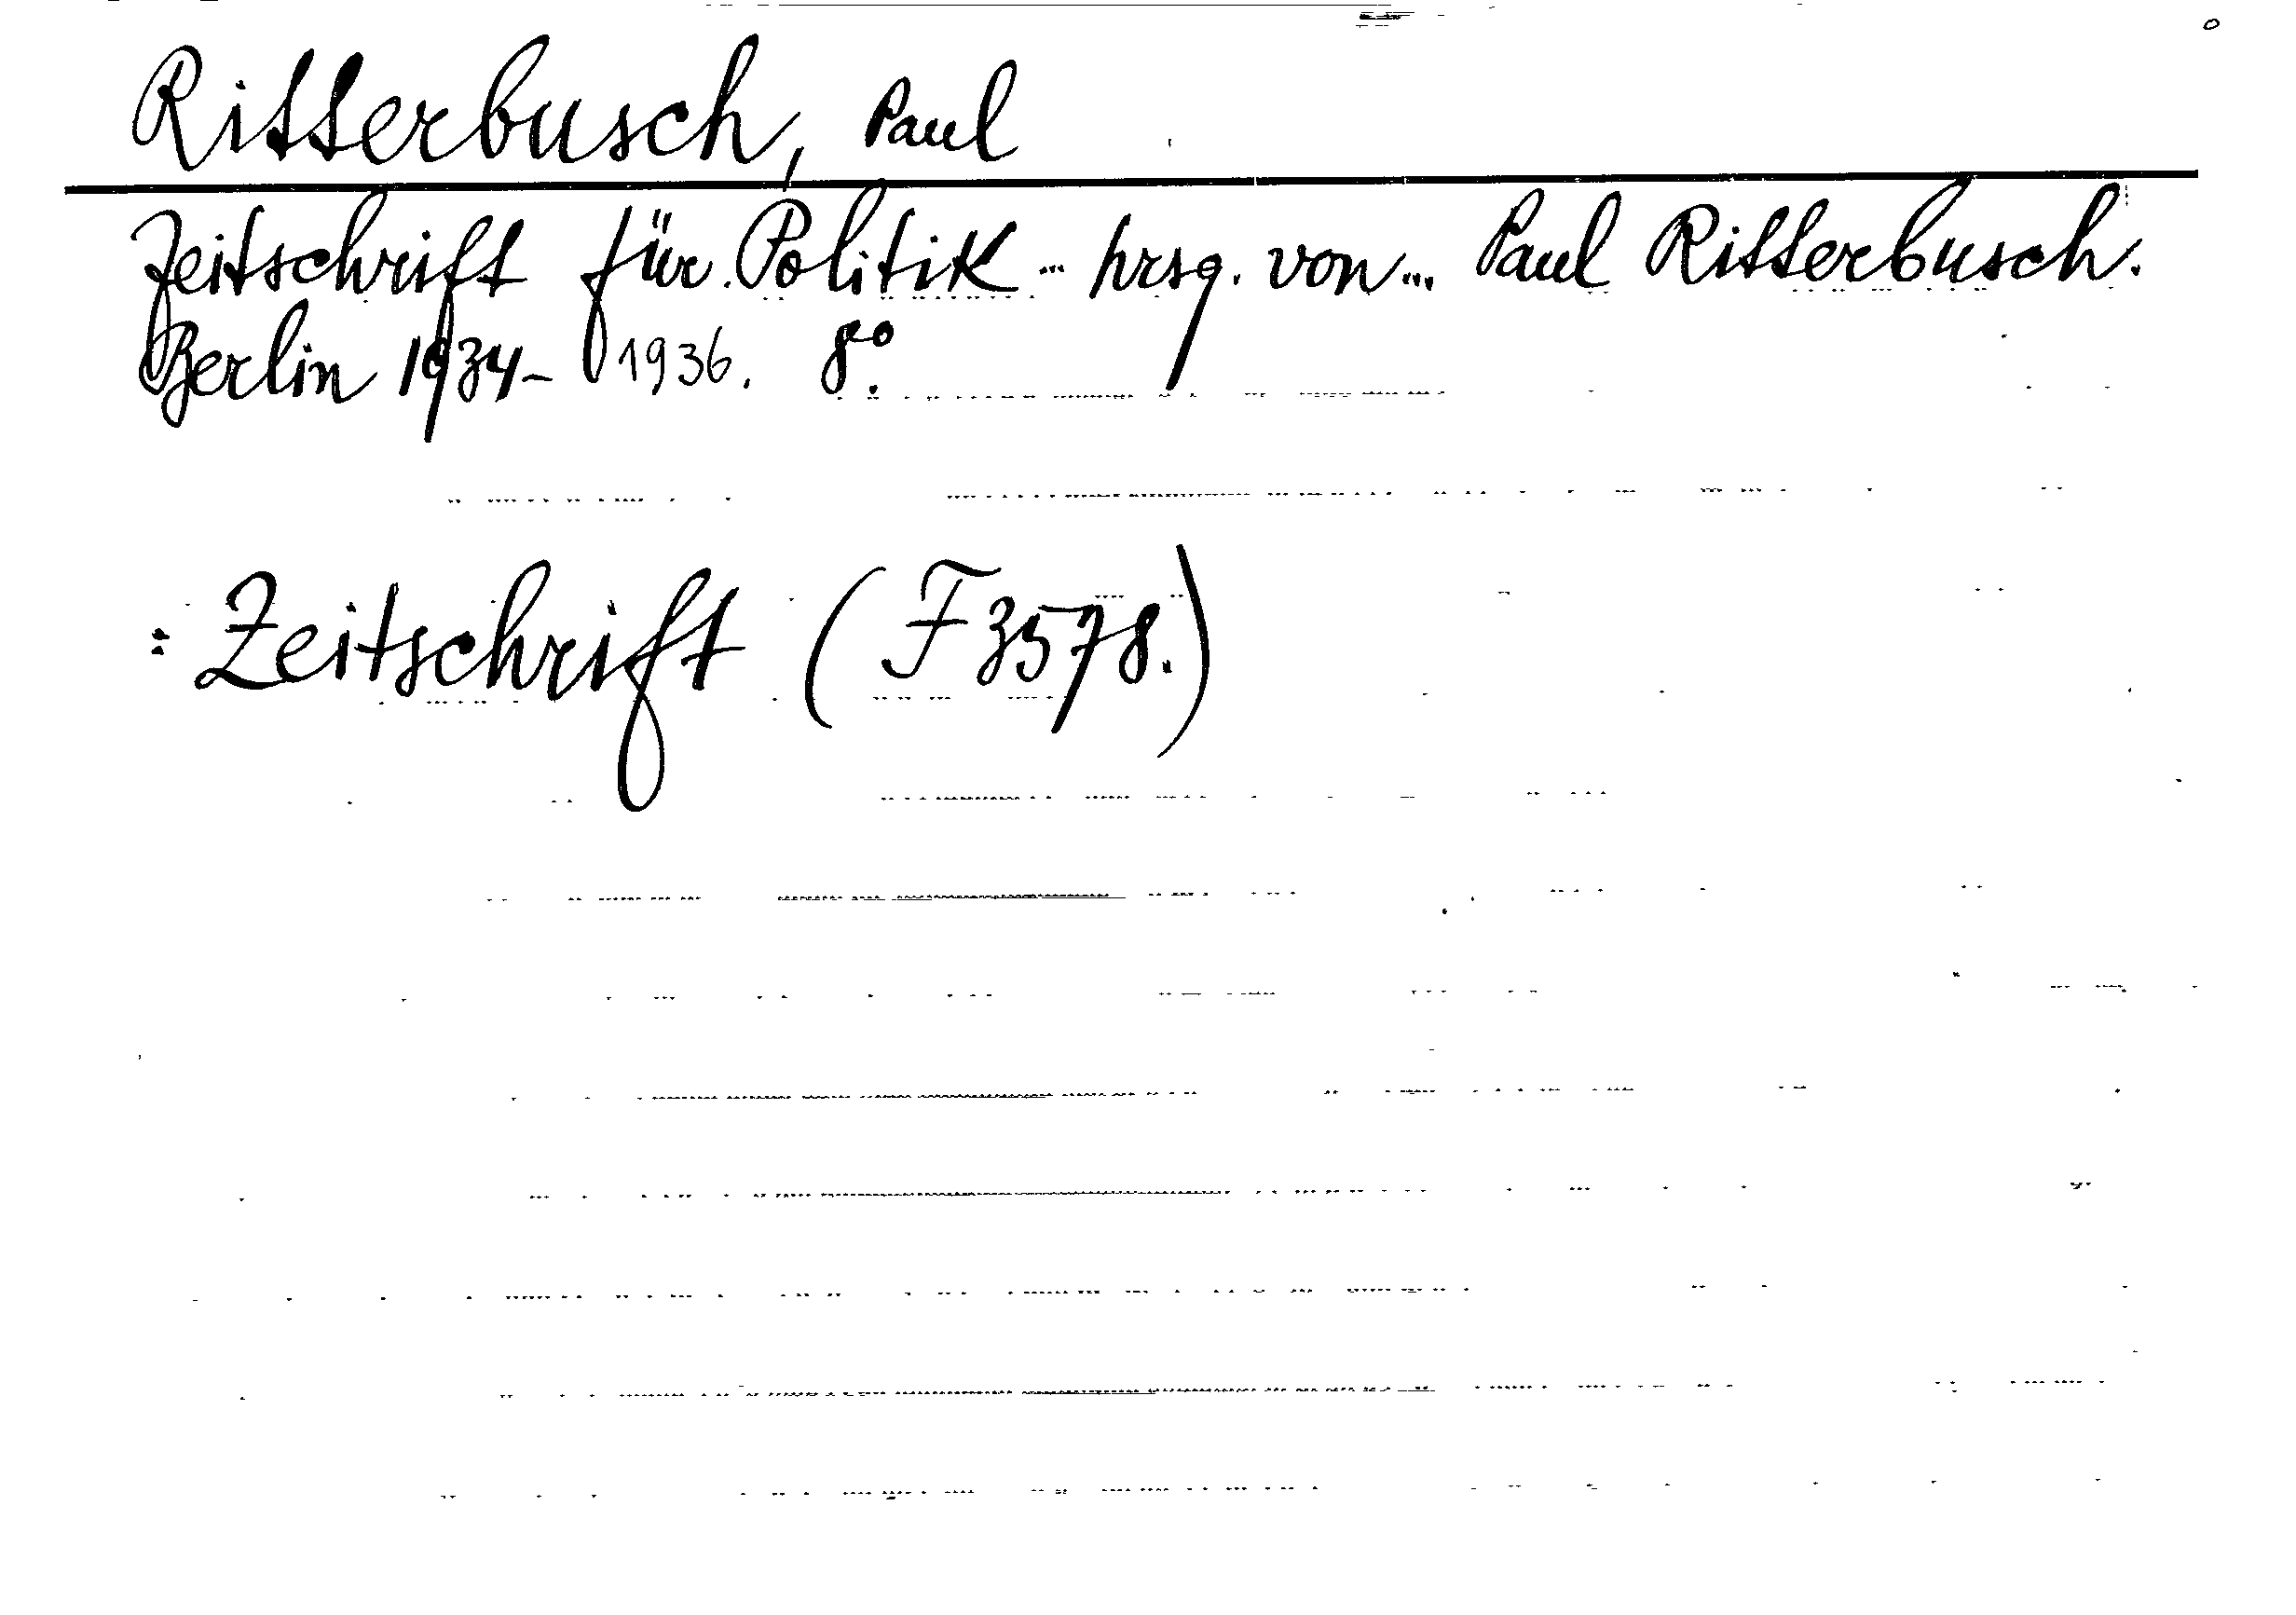 Ritterbusch, Paul
Zeitschrift für Politik ... hrsg. von ... Paul Ritterbusch.
Berlin 1934-1936. 8°.
: Zeitschrift (F 3578.)